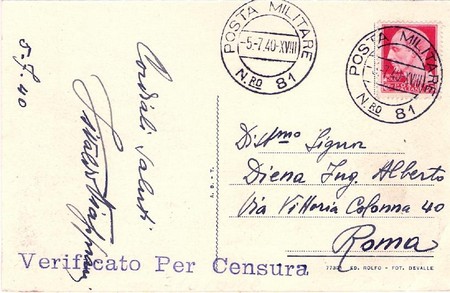 5-7.40
Cordiali saluti
POSTA MILITARE
-5-7.40-XVIII
NRO 81
POSTA MILITARE
40-XVIII
NRO 81
Dist.mo Signor
Diena Ing. Alberto
Via Vittoria Colonna 40
Roma
Verificato Per Censura
ED. ROLFO - FOT. DEVALLE